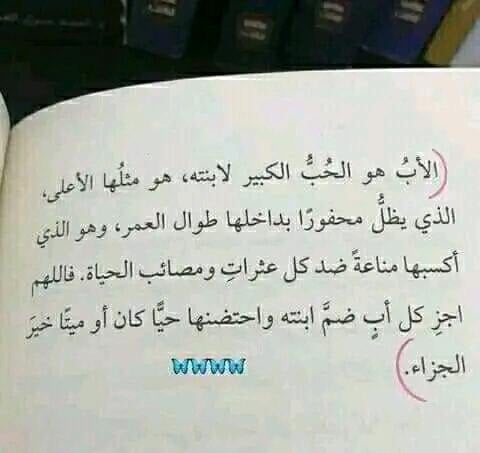 (الأبُ هو الحُبُّ الكبير لابنته، هو مثلُها الأعلى،
الذي يظلُّ محفورًا بداخلها طوال العمر، وهو الذي
أكسبها مناعةً ضد كل عثراتِ ومصائب الحياة. فاللهم
اجزِ كل أبٍ ضمَّ ابنته واحتضنها حيًّا كان أو ميتًا خيرَ
الجزاء.)